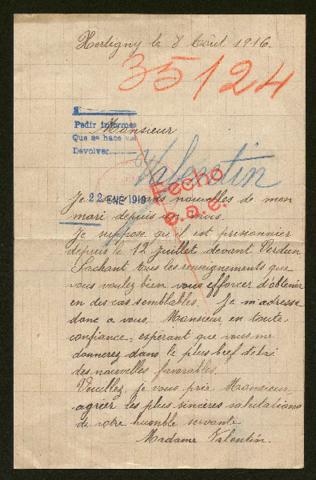 Hertigny le 8 Août 1916.
35124
Monsieur
Pedir informes
Que se hace
Devolver
Valentin
22 ENE 1919
Fecho
s.a.e.
Je nouvelles de mon
mari depuis mois.
Je suppose qu'il est prisonnier
depuis le 12 juillet devant Verdun
Sachant tous les renseignements que
vous voulez bien vous efforcer d'obtenir
en des cas semblables. Je m'adresse
donc a vous Monsieur en toute
confiance, espérant que vous me
donnerez dans le plus bref délai
des nouvelles favorables.
Veuillez, je vous prie Monsieur
agréer les plus sincères salutations
de votre humble servante
Madame Valentin.